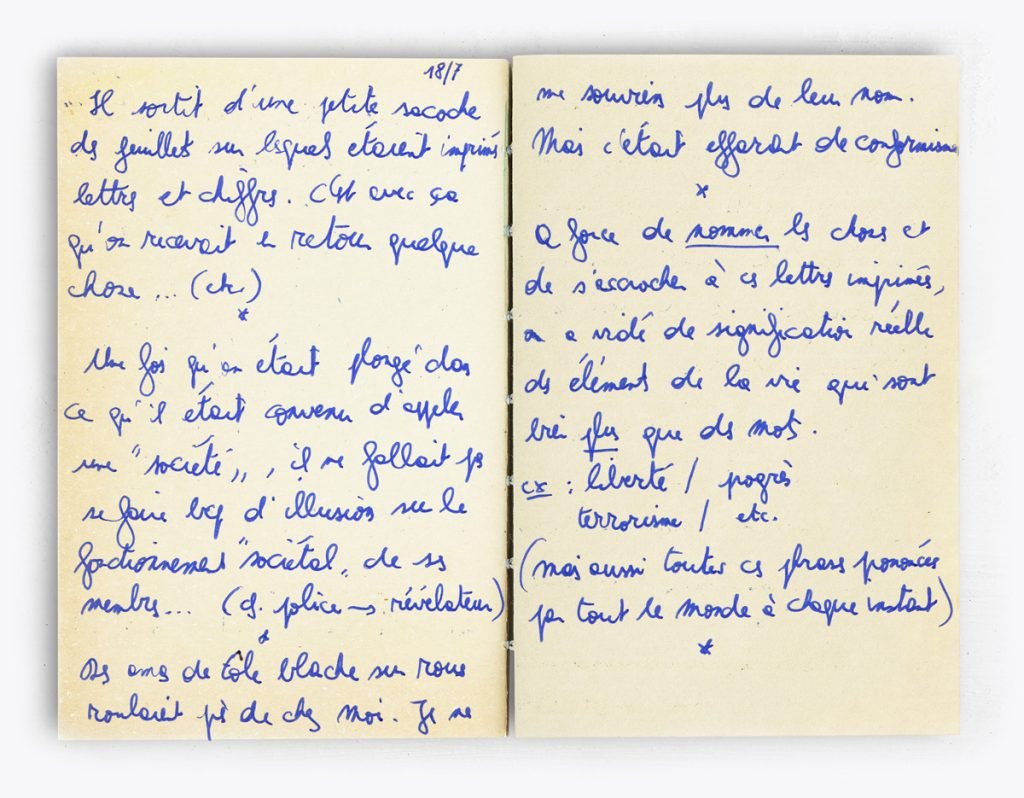 18/7
" Il sortit d'une petite sacoche
des feuillets sur lesquels étaient imprimés
lettres et chiffres. C'est avec ça
qu'on recevait en retour quelque
chose... (etc.)
*
Une fois qu'on était plongé dans
ce qu'il était convenu d'appeler
une "société", il ne fallait pas
se faire bcp d'illusions sur le
fonctionnement "sociétal" de ses
membres... (cf. police → révélateur)
*
Des amas de tôle blache sur roues
roulaient près de chez moi. Je ne
me souviens plus de leur nom.
Mais c'était effarant de conformisme
*
A force de nommer les choses et
de s'accrocher à ces lettres imprimés,
on a vidé de signification réelle
des éléments de la vie qui sont
bien plus que des mots.
ex : liberté / progrès
terrorisme / etc.
(mais aussi toutes ces phrases prononcées
par tout le monde à chaque instant)
*